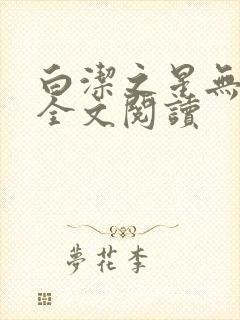 白潔之星無
全文閱讀
夢花李